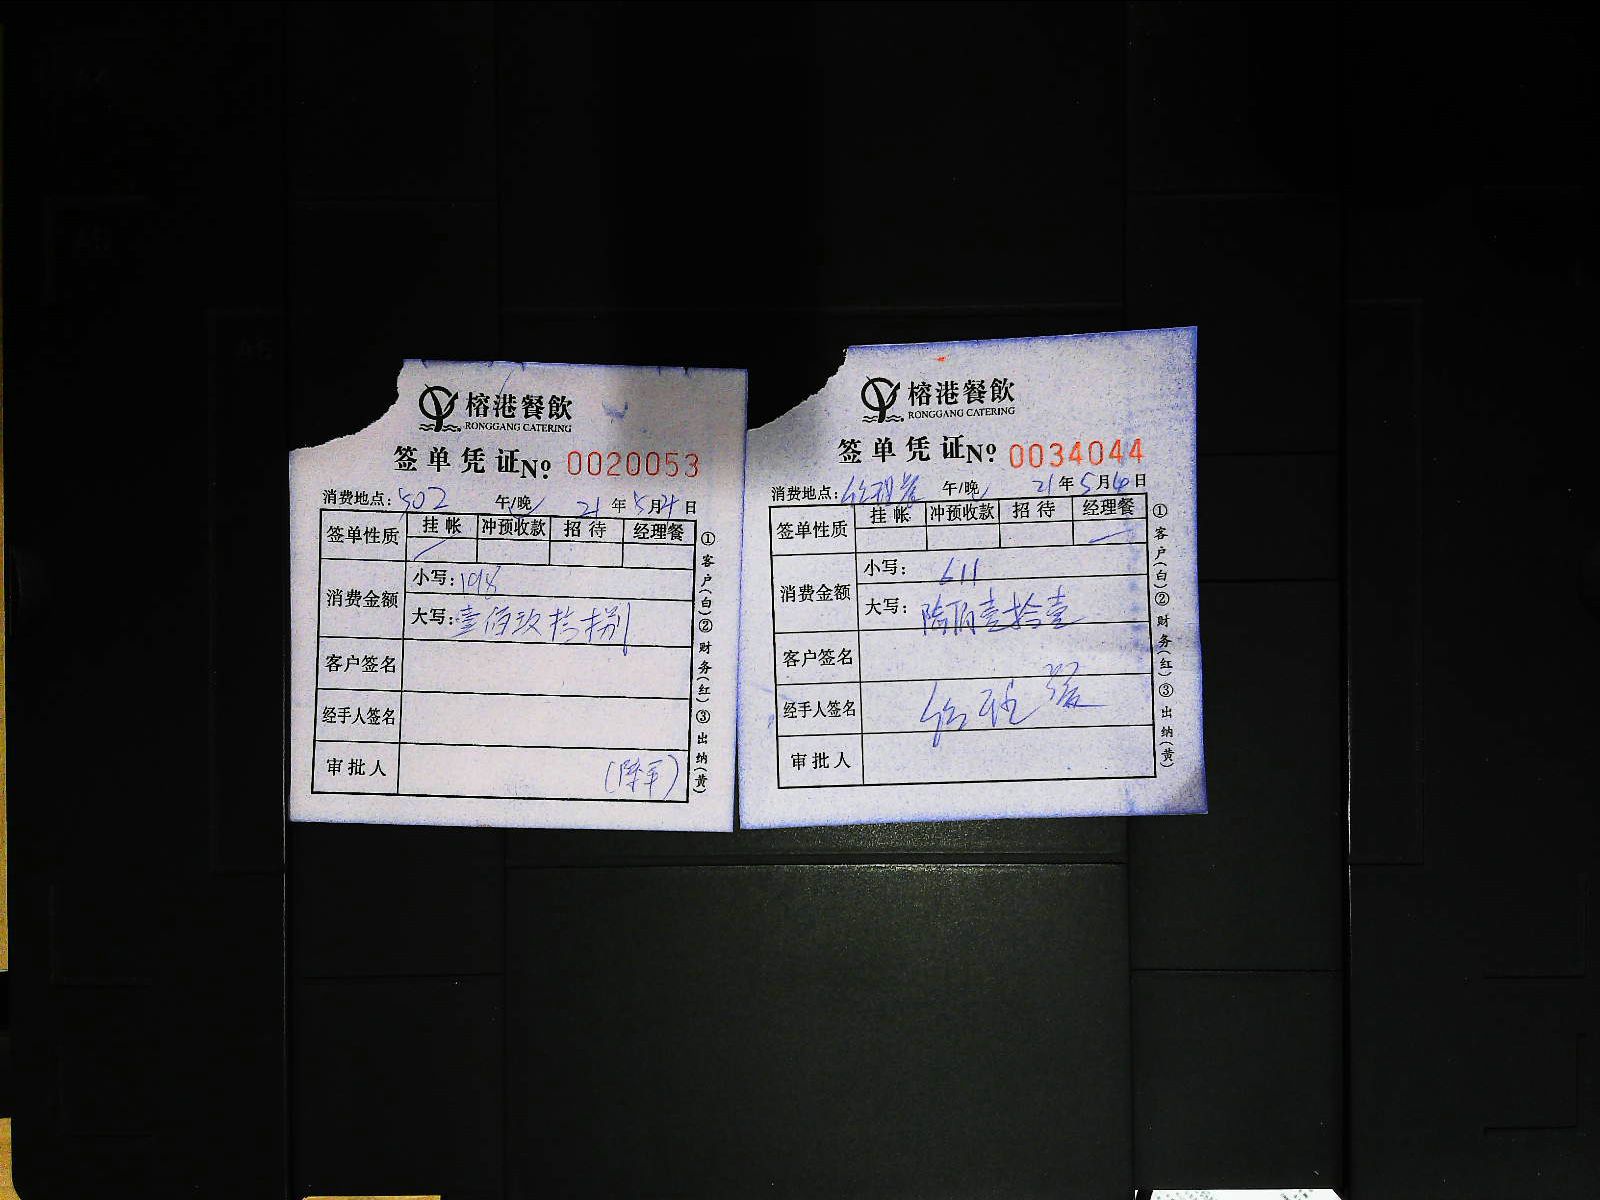 榕港餐飲
RONGGANG CATERING
签单凭证№ 0020053
消费地点：502 午/晚 21年5月4日
签单性质 挂帐 冲预收款 招待 经理餐
消费金额
小写：198
大写：壹佰玖拾捌
客户签名
经手人签名
审批人
①客户(白)②财务(红)③出纳(黄)
榕港餐飲
RONGGANG CATERING
签单凭证№ 0034044
消费地点： 午/晚 21年5月4日
签单性质 挂帐 冲预收款 招待 经理餐
消费金额
小写：611
大写：陆佰壹拾壹
客户签名
经手人签名
审批人
①客户(白)②财务(红)③出纳(黄)